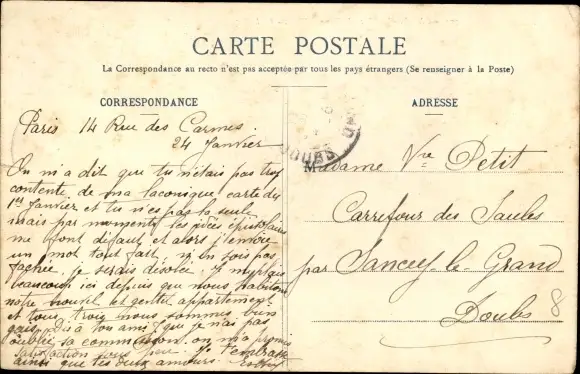 CARTE POSTALE
La Correspondance au recto n'est pas acceptée par tous les pays étrangers (Se renseigner à la Poste)
CORRESPONDANCE
Paris 14 Rue des Carmes.
24 Janvier
On m'a dit que tu n'étais pas trop
contente, de ma laconique carte du
1er Janvier et tu n'es pas la seule
mais par moments les idées épistolaires
me font défaut, et alors j'envoie
un mot tout fait, n'en sois pas
fachée, je serais désolée. Je me plais
beaucoup ici depuis que nous habitons
notre nouvel et gentil appartement
et tous trois nous sommes bien
gais. Dis à ton ami que je n'ai pas
oublié sa commission, on m'a promis
satisfaction sous peu. Je t'embrasse
ainsi que tes deux amours.
ADRESSE
DOUBS
Madame Vve Petit
Carrefour des Saules
par Sancey-le-Grand
Doubs
8